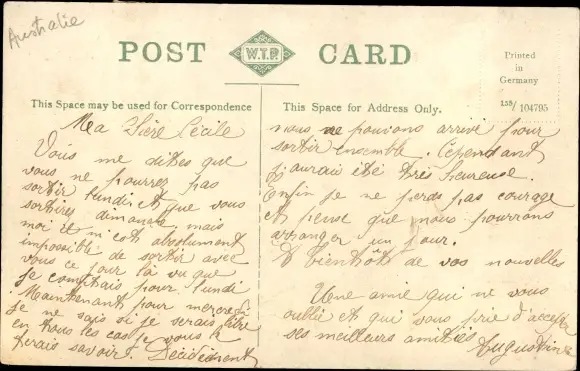 Australie
POST W.T.P. CARD
Printed
in
Germany
158/104795
This Space may be used for Correspondence
This Space for Address Only.
Ma Cécile
Vous me dites que
vous ne pourrez pas
sortir lundi et que vous
sortirez dimanche mais
moi il m'est absolument
impossible de sortir avec
vous ce jour là vu que
je comptais pour lundi
Maintenant pour mercredi
je ne sais si je serais libre
en tous les cas je vous le
ferais savoir. Décidément
nous ne pouvons arrivé pour
sortir ensemble. Cependant
j'aurais été très heureuse.
Enfin je ne perds pas courage
et pense que nous pourrons
arranger un jour.
A bientôts de vos nouvelles
Une amie qui ne vous
oubli et qui vous prie d'accepter
ses meilleurs amitiés
Augustine